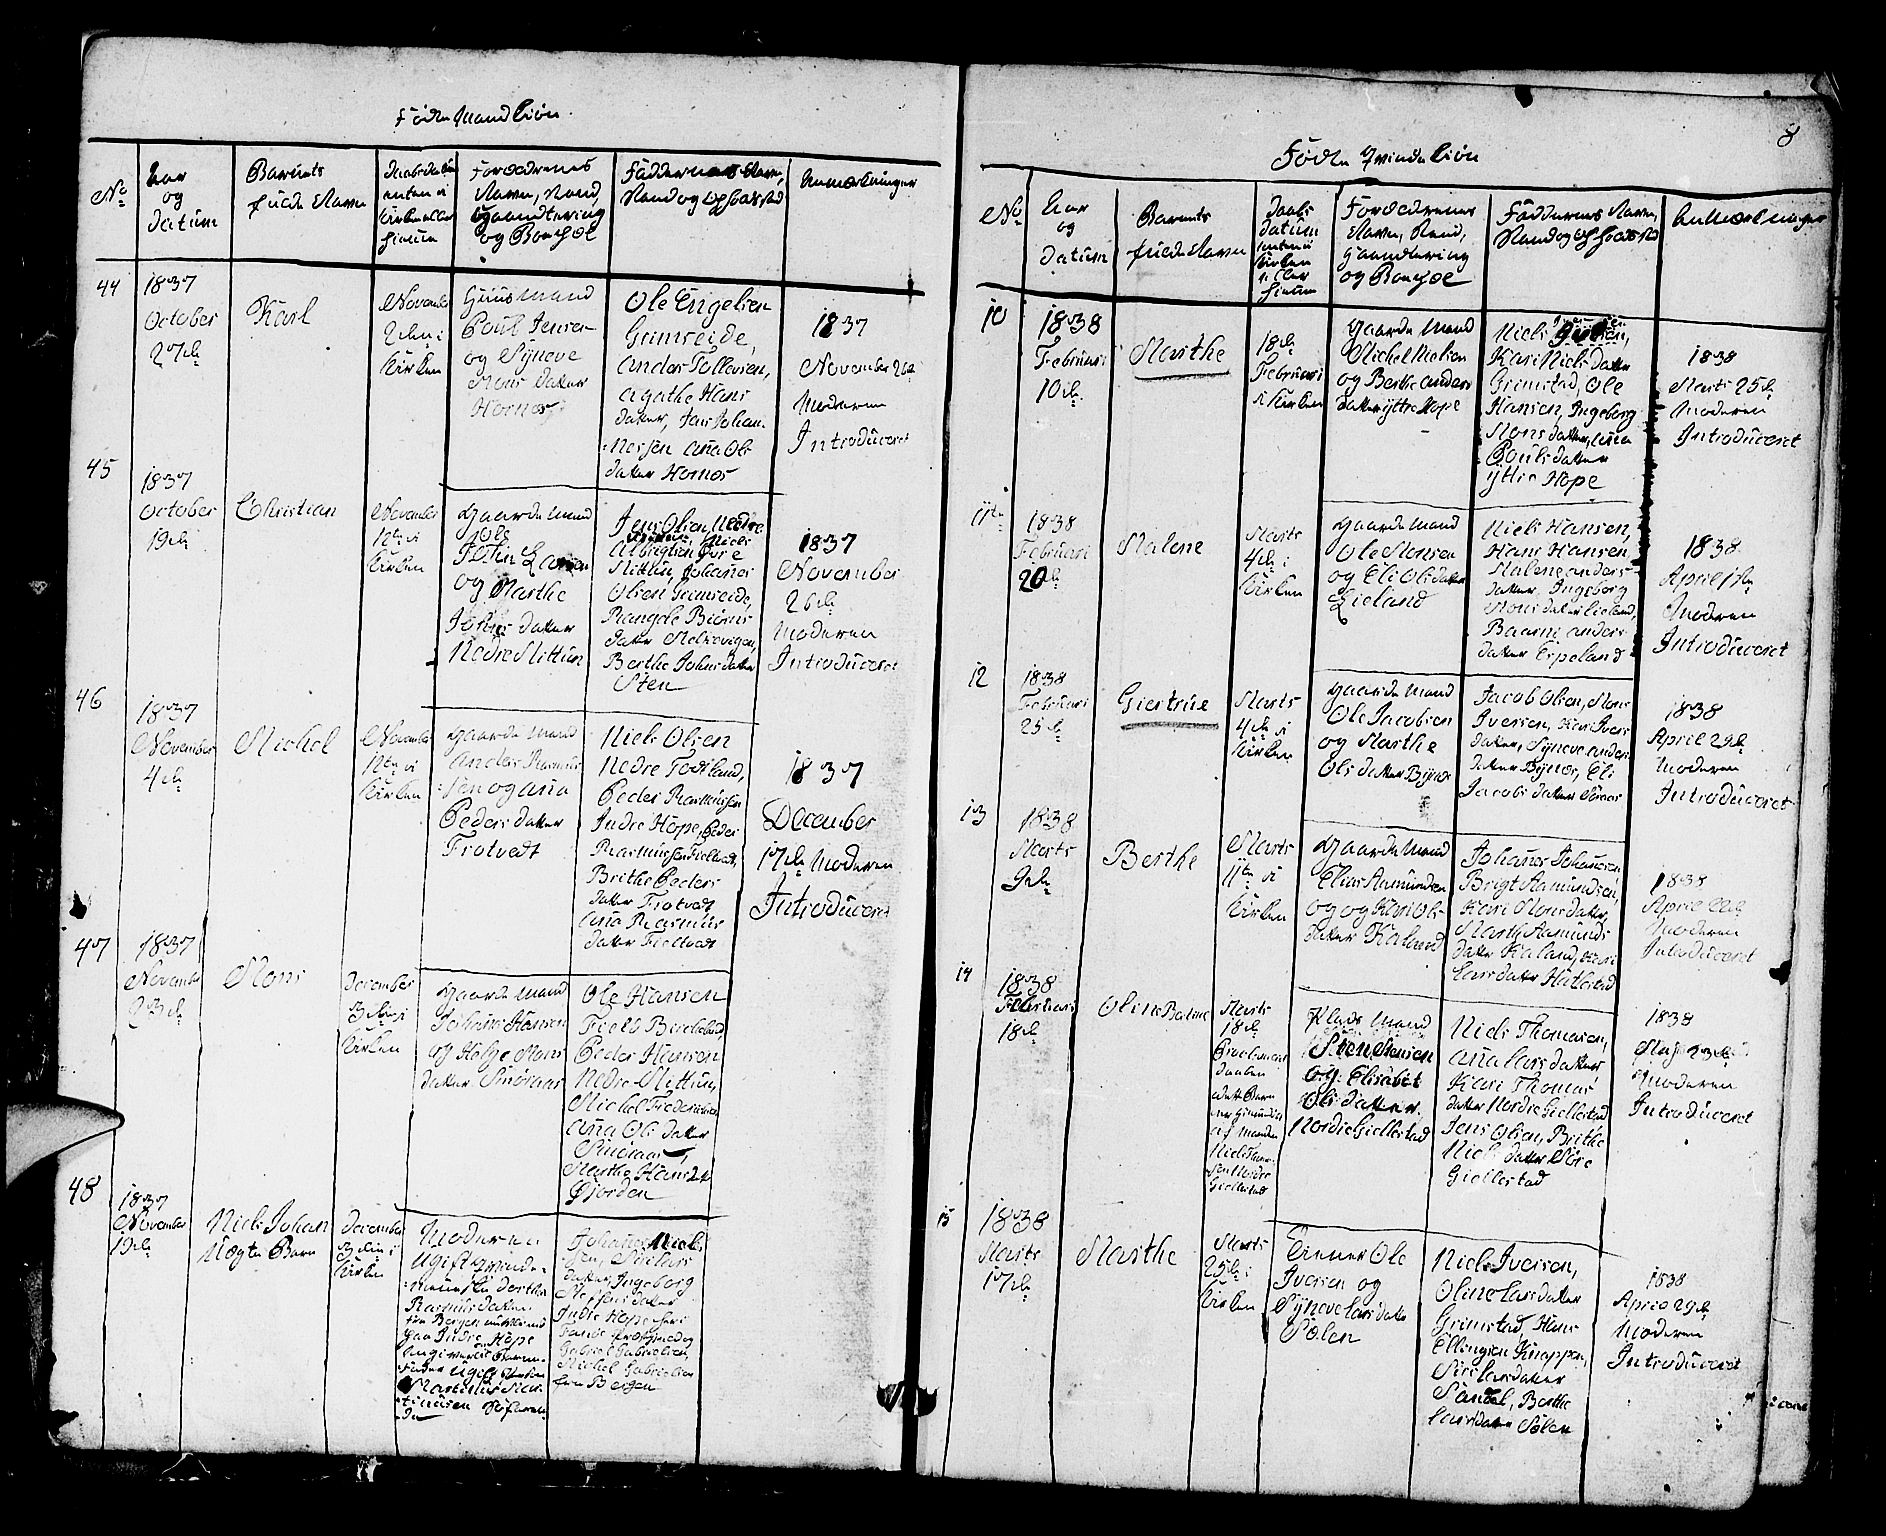 Fødte Mandkiøn
No
Aar
og
Datum
Barnets
fulde Navn
Daabsdatum
enten i
Kirken eller
hiemme
Forældrenes
Navn, Stand,
Haandtering
og Bopæl
Faddernes Navn,
Stand og Opholdssted
Anmærkninger
44
1837
October
27de
Karl
November
2den i
Kirken
Huusmand
Poul Jensen
og Syneve
Mons datter
Hornæs
Ole Engelsen
Grimseide,
Anders Tollevsen,
Agathe Hans
datter, Jens Johan-
nessen Ana Ols
datter Hornæs
1837
November 26de
Moderen
Introduceret
45
1837
October
19de
Christian
November
12te i
Kirken
Gaarde Mand
John Larsen
og Marthe
Johns datter
Nedre Mittun
Jens Olsen, Nedre
Mittun, Johanes
Olsen Grimseide,
Rangele Biørns
datter Melkevigen,
Berthe Johns datter
Sten
1837
November
26de
Moderen
Introduceret
46
1837
November
4de
Michel
November
12te i
Kirken
Gaarde Mand
Anders Rasmus-
sen og Ana
Peders datter
Trotvedt
Niels Olsen
Nedre Todland,
Peder Rasmussen
Indre Hope, Peder
Rasmussen Fieltvedt,
Brithe Peders
datter Trotvedt
Ana Rasmus
datter Fieltvedt
1837
December
17de Moderen
Introduceret
47
1837
November
23de
Mons
December
3die i
Kirken
Gaarde Mand
Johans Hansen
og Helge Mons
datter Smøraas
Ole Hansen
Field Birkeland,
Peder Hansen
Nedre Mittun,
Michel Frederiksen
Ana Ols datter
Smøraas,
Marthe Hansdt
Øjorden
48
1837
November
19de
Niels Johan
Uægte Barn
December
3die i
Kirken
Moderen
Ugift Qvinde-
menneske Dorthe
Rasmusdatter
fra Bergen
paa Indre Hope
Fader Ugift
Johanes Niels
sen, Siri Lars
datter, Ingeborg
Steffens datter
Indre Hope
Gabriel Gabrielsen,
Michel Gabrielsen
fra Bergen
8
Fødte Qvindekiøn
No
Aar
og
Datum
Barnets
fulde Navn
Daabs
datum
enten i
Kirken
eller
hiemme
Forældrenes
Navn, Stand,
Haandtering
og Bopæl
Faddernes Navn,
Stand og Opholdssted
Anmærkninger
10
1838
Februari
10de
Marthe
18de
Februari
i Kirken
Gaarde Mand
Michel Nielsen
og Berthe Anders
datter Yttre Hope
Niels
Kari Niels datter
Grimstad, Ole
Hansen, Ingeborg
Mons datter, Ana
Pouls datter
Yttre Hope
1838
Marts 25de
Moderen
Introduceret
11te
1838
Februari
20de
Malene
Marts
4de i
Kirken
Gaarde Mand
Ole Monsen
og Eli Ols datter
Lieland
Niels Hansen,
Hans Hansen,
Malene Anders-
datter, Ingeborg
Mons datter Lieland,
Baarni Anders
datter Espeland
1838
April 1ste
Moderen
Introduceret
12
1838
Februari
25de
Giertrue
Marts
4de i
Kirken
Gaarde Mand
Ole Jacobsen
og Marthe
Ols datter Bynæs
Jacob Olsen, Mons
Iversen, Kari Ivers
datter, Syneve Anders
datter Bynæs, Eli
Jacobs datter Søraas
1838
April 29de
Moderen
Introduceret
13
1838
Marts
9de
Berthe
Marts
11te i
Kirken
Gaarde Mand
Elias Aamundsen
og og Kari Ols
datter Kaland
Johanes Johanesen,
Brigt Aamundsen,
Kari Mons datter,
Marthe Aamunds
datter Kaland, Kari
Lars datter Hatlestad
1838
April 22de
Moderen
Introduceret
14
1838
Februari
18de
Oline Bertine
Marts
18de
Plads Mand
Sten Stensen
og Elisabet
Ols datter
Nordre Giellestad
Niels Thomasen,
Ana Lars datter,
Kari Thomas
datter Nordre Giellestad
Jens Olsen, Brithe
Niels datter Søre
Giellestad
1838
Maj 23de
Moderen
Introduceret
15
1838
Marts
17de
Marthe
Marts
25de i
Kirken
Tiener Ole
Iversen og
Syneve Lars datter
Sølen
Niels Iversen,
Oline Lars datter
Grimstad, Hans
Ellingsen Knappen,
Siri Lars datter
Sandal, Berthe
Lars datter Sølen
1838
April 29de
Moderen
Introduceret